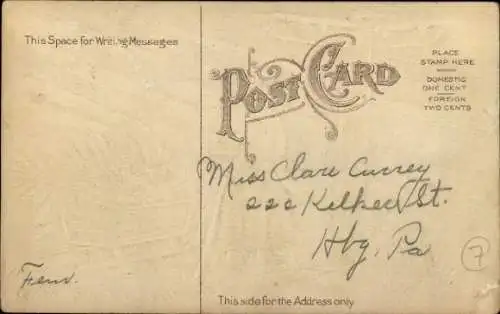 This Space for Writing Messages
POST CARD
PLACE
STAMP HERE
DOMESTIC
ONE CENT
FOREIGN
TWO CENTS
Miss Clare Currey
222 Kelker St.
Hbg, Pa
7
This side for the Address only